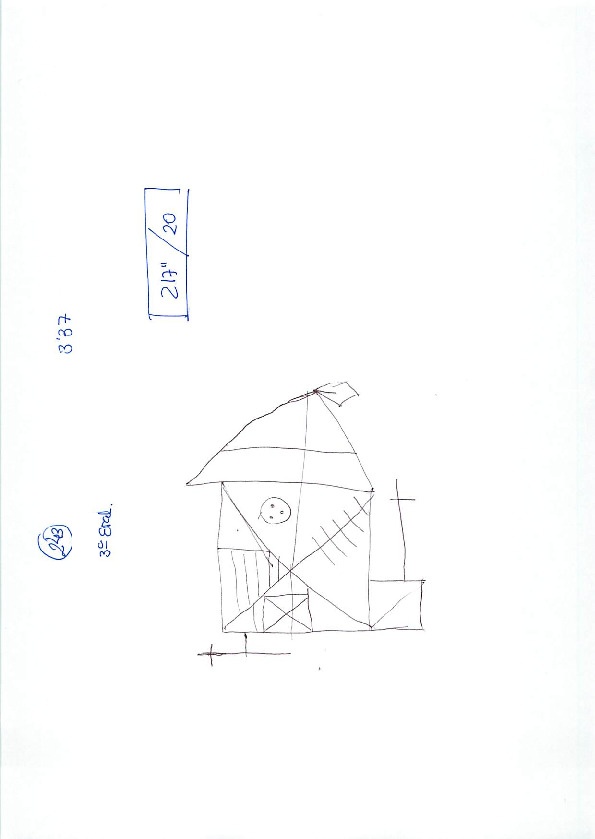 243
3º Eval.
3'37
217" / 20